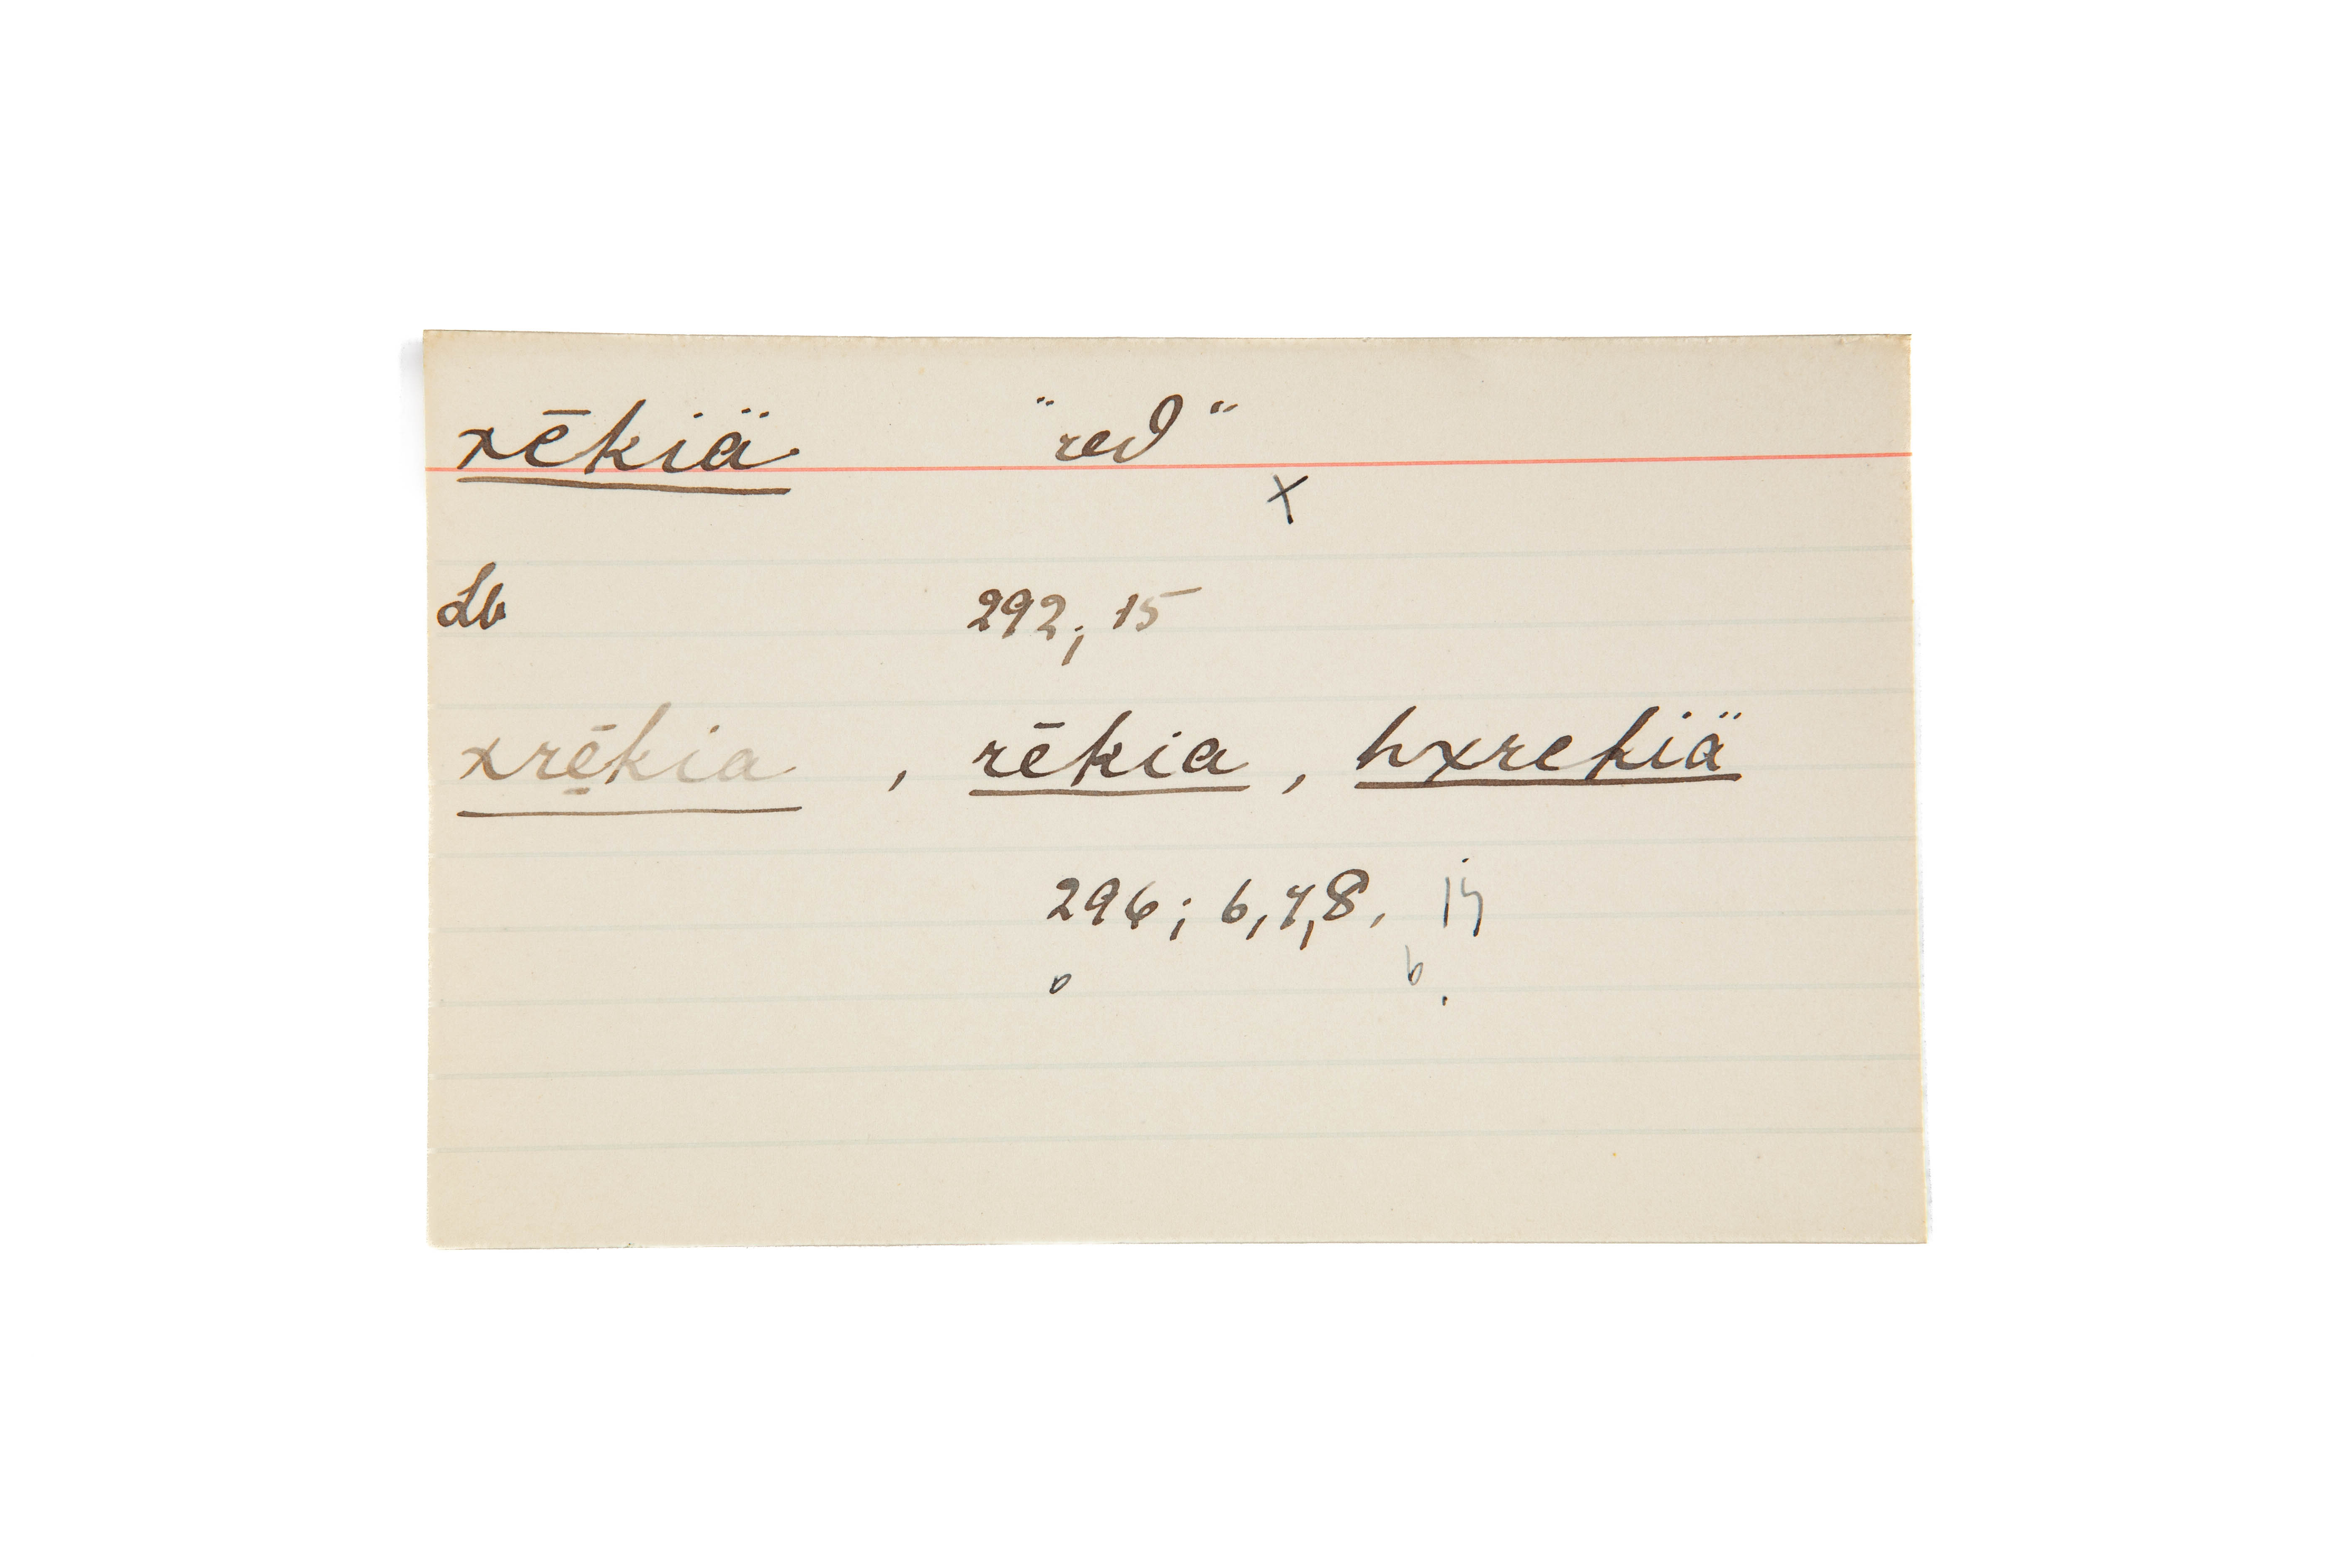 xēkiä "red"
x
Lb 292; 15
xrē̱kia , rēkia , hxrekiä
296; 6,7,8,
o b.